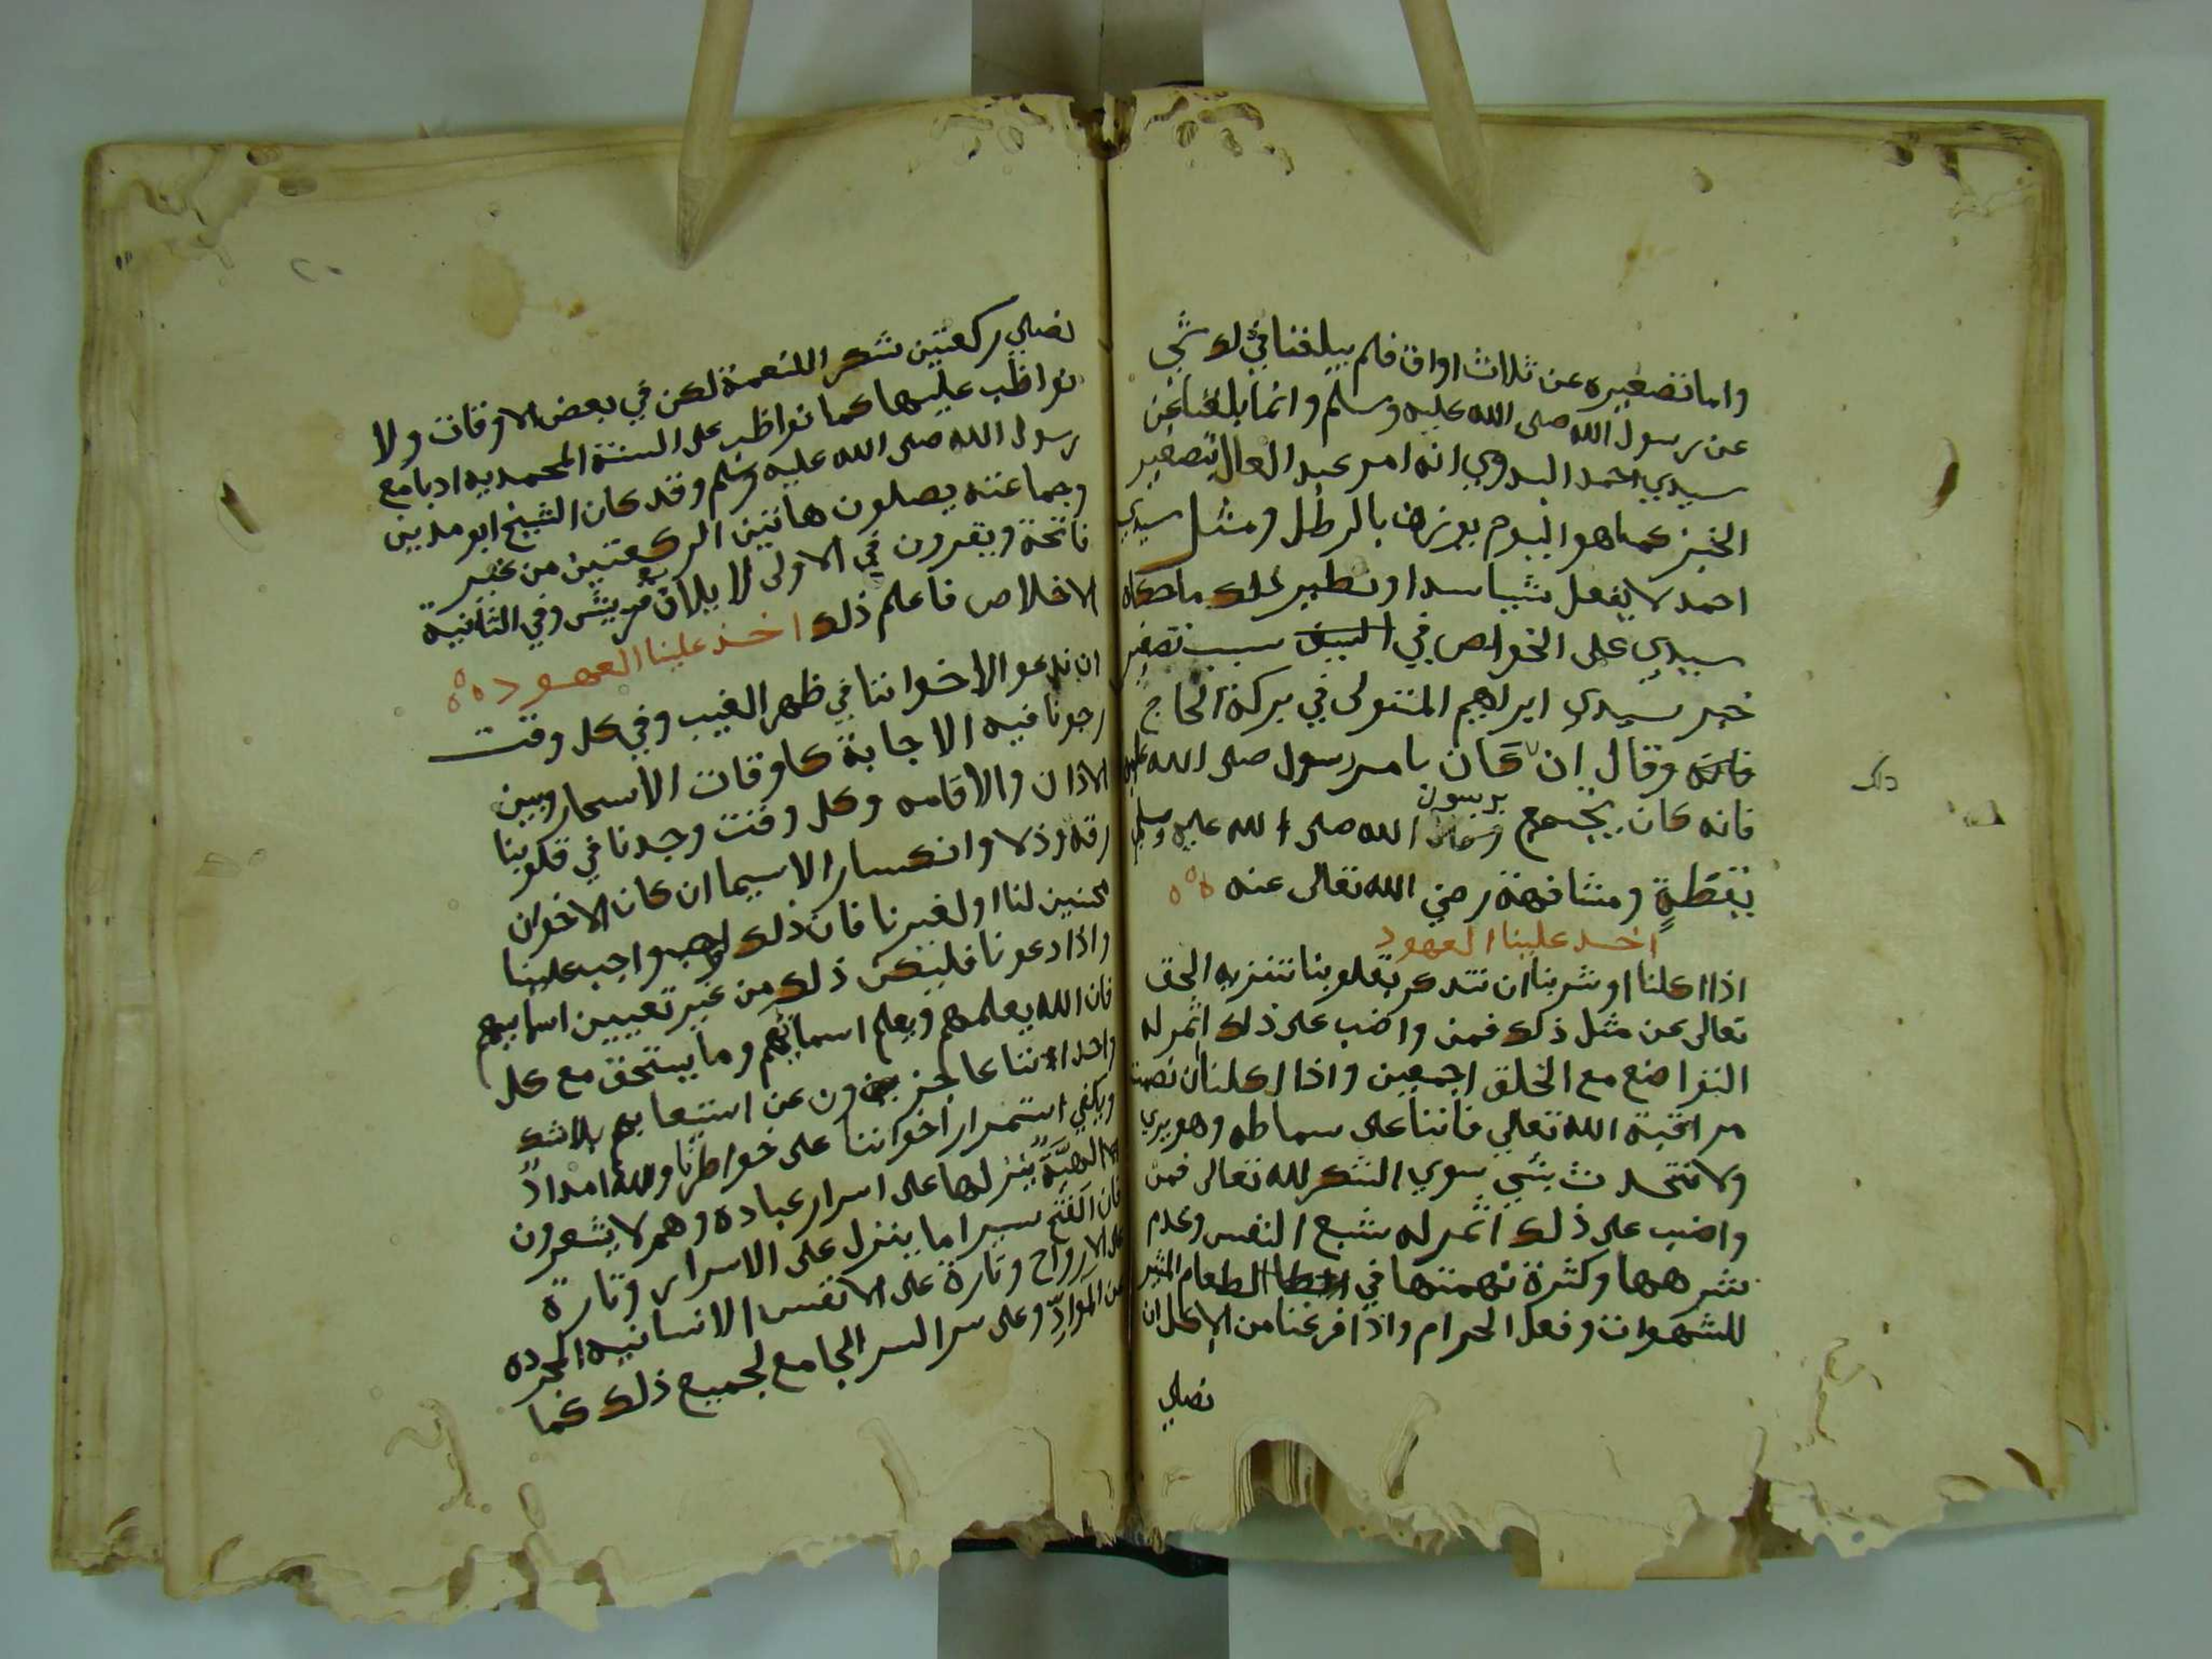 واما تصغيره عن ثلاث اواق فلم يبلغنا في ذلك شي
عن رسول الله صلى الله عليه وسلم وانما بلغنا عن
سيدي احمد البدوي انه امر عبد العال بتصغير
الخبز كما هو اليوم يوزن بالرطل ومثل سيدي
احمد لا يفعل شيا سدا ونظير ذلك ما حكاه
سيدي على الخواص في سبب تصغير
خبز سيدي ابراهيم المتبولى في بركة الحاج
وقال ان كان بامر رسول صلى الله عليه
فانه كان يجتمع برسول الله صلى الله عليه وسلم
يقظة ومشافهة رضي الله تعالى عنه
اخد علينا العهود
اذا اكلنا او شربنا ان نتدكر بقلوبنا تنزيه الحق
تعالى عن مثل ذلك فمن واضب على ذلك اثمر له
التواضع مع الخلق اجمعين واذا اكلنا ان نصمت
مراقبة الله تعالي فاننا على سماطه وهو يري
ولا نتحدث بشي سوي الشكر لله تعالى فمن
واضب على ذلك اثمر له شبع النفس وعدم
شرهها وكثرة نهمتها في الطعام المثير
للشهوات وفعل الحرام واذا فرغنا من الاكل ان
نصلي
نصلي ركعتين شكر اللنعمة لكن في بعض الاوقات ولا
نواظب عليها كما نواظب على السنة المحمديه ادبا مع
رسول الله صلى الله عليه وسلم وقد كان الشيخ ابو مدين
وجماعته يصلون هاتين الركعتين من غير
فاتحة ويقرون في الاولى لايلاف قريش وفي الثانية
الاخلاص فاعلم ذلك اخذ علينا العهود
ان ندعو الاخواننا في ظهر الغيب وفي كل وقت
رجونا فيه الاجابة كاوقات الاسحار وبين
الاذان والاقامه وكل وقت وجدنا في قلوبنا
رقة وذلا وانكسار الاسيما ان كان الاخوان
محسنين لنا او لغيرنا فان ذلك واجب علينا
واذا دعونا فليكن ذلك من غير تعيين اسمايهم
فان الله يعلمهم ويعلم اسمائهم وما يستحق مع كل
واحد اننا عاجزون عن استيعابهم بلا شك
ويكفي استمرار اخواننا على خواطرنا ولله امداد
الاهية ينزلها على اسرار عباده وهم لا يشعرون
فان الفتح سيرا ما ينزل على الاسرار وتارة
على الارواح وتارة على الانفس الانسانيه المجرده
عن المواد وعلى سر السر الجامع لجميع ذلك كما